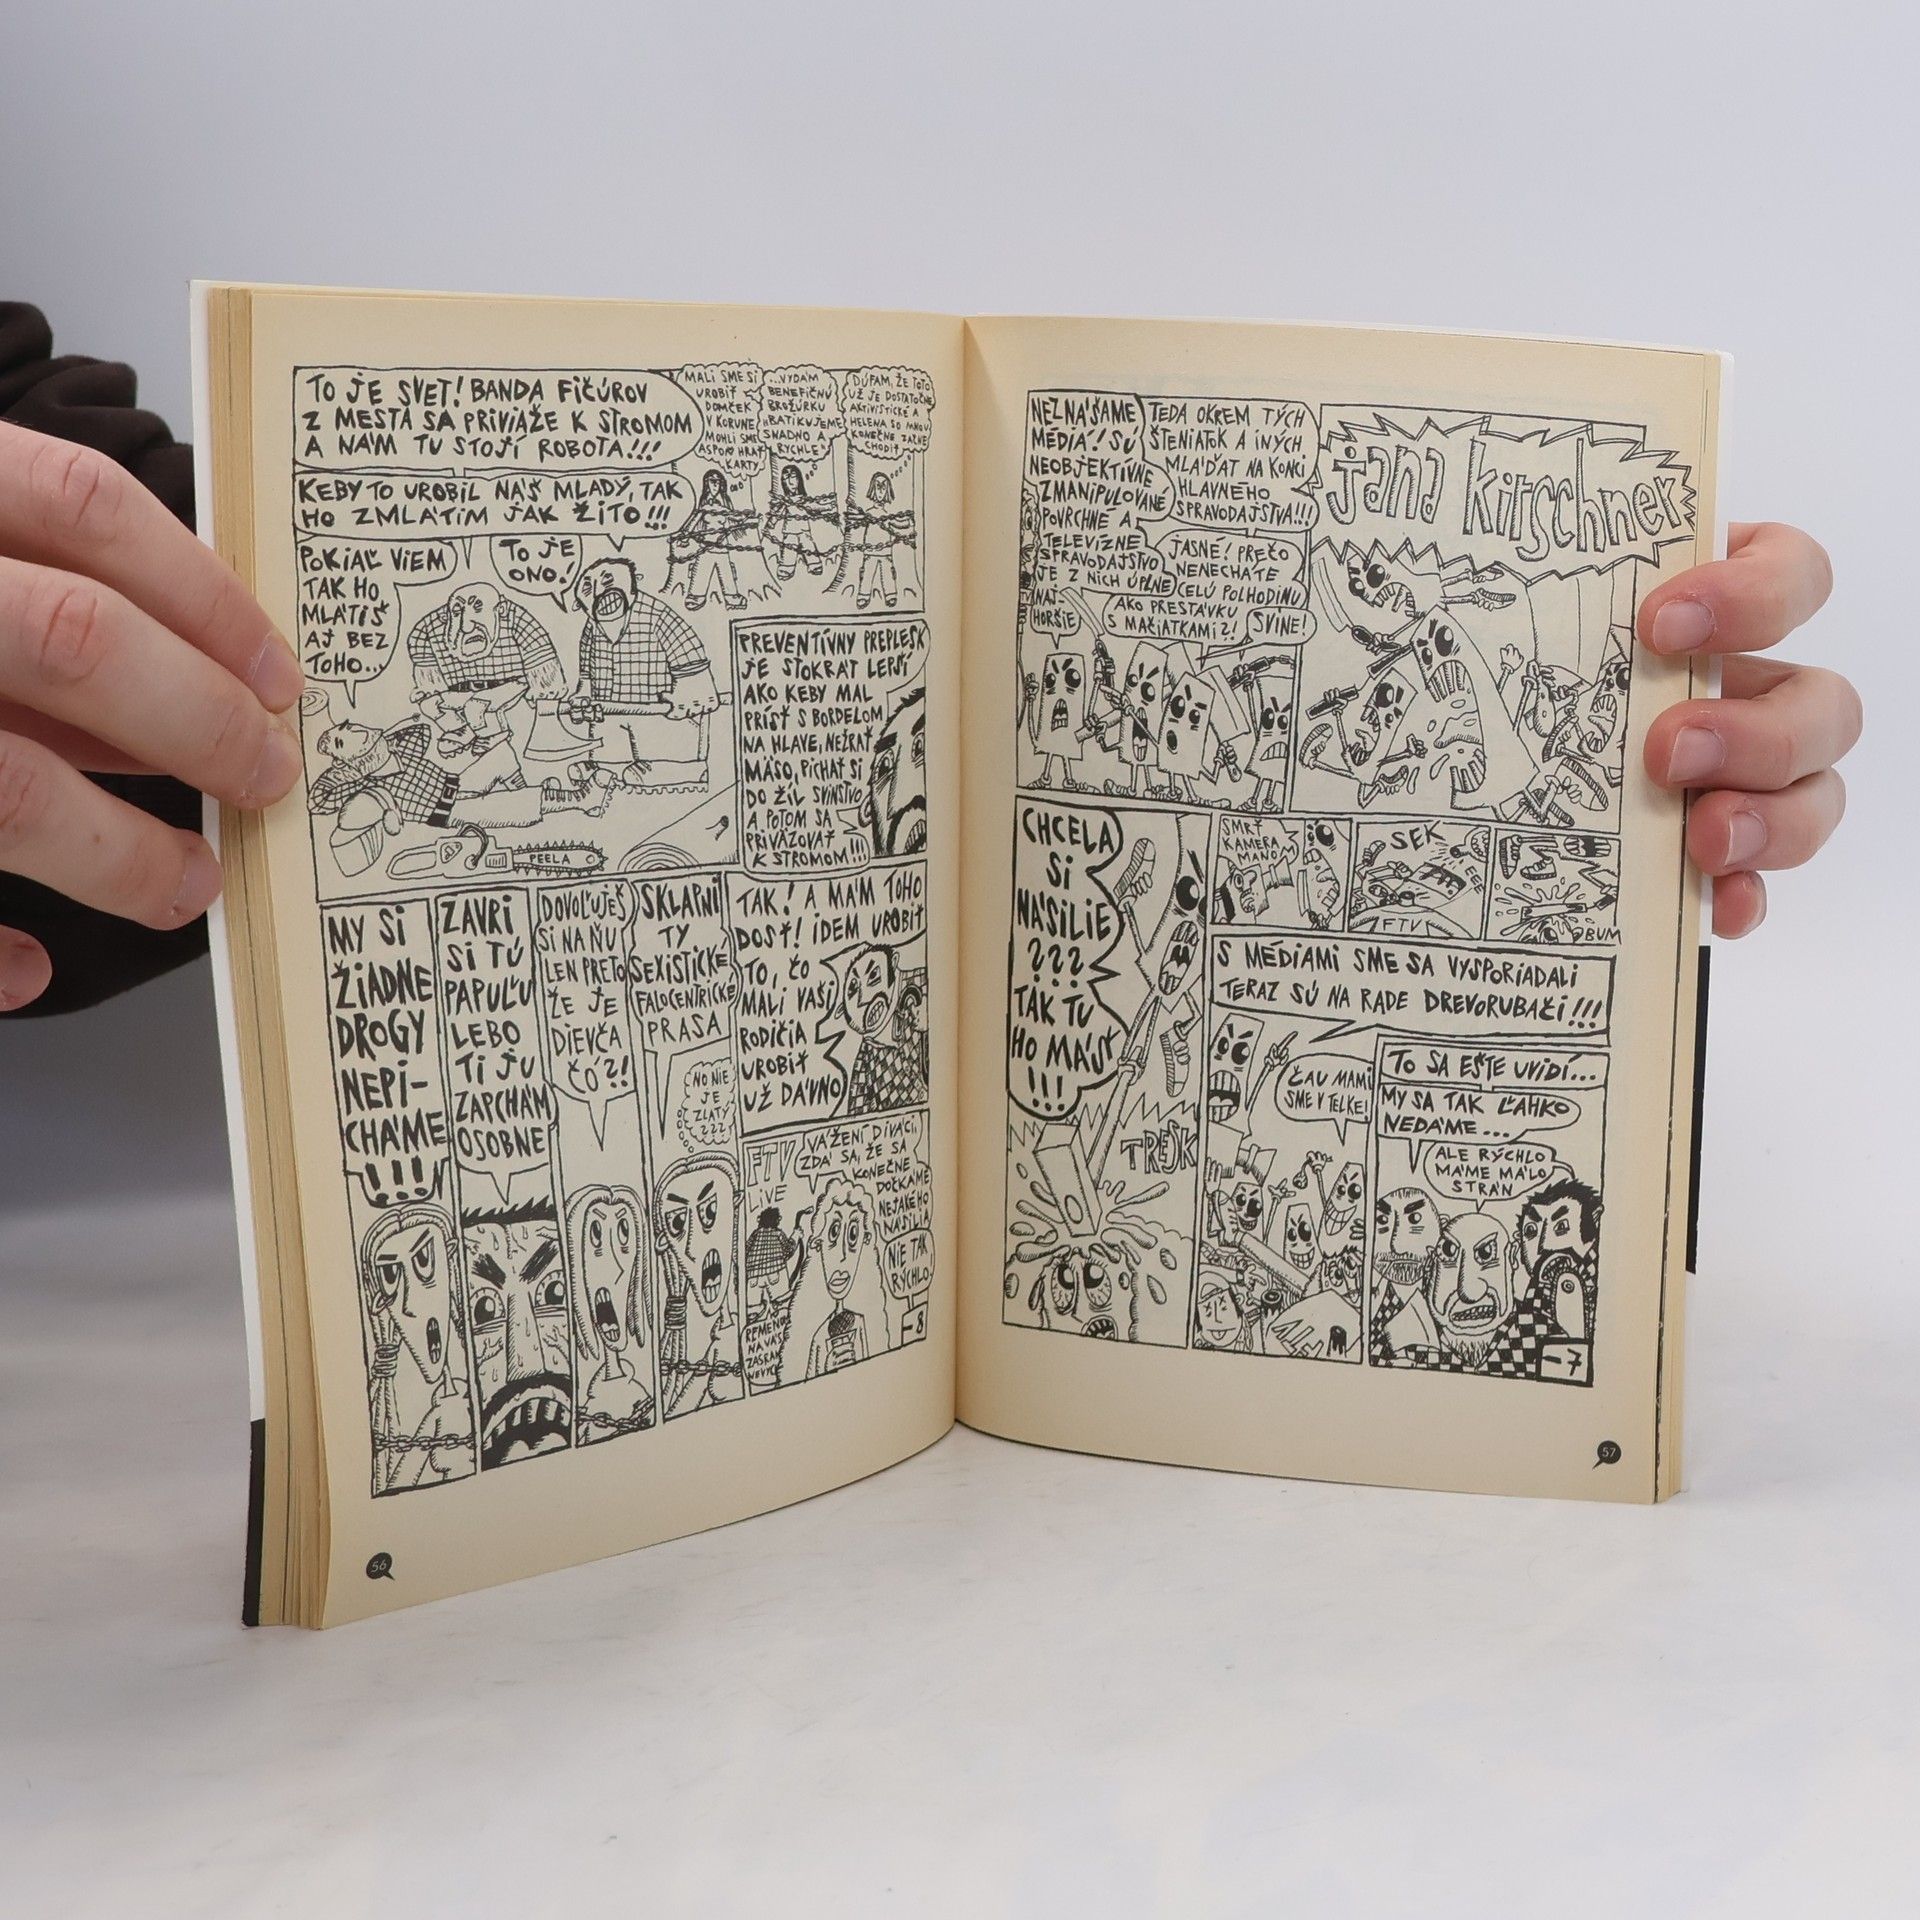 TO JE SVET! BANDA FIČÚROV
Z MESTA SA PRIVIAŽE K STROMOM
A NÁM TU STOJÍ ROBOTA!!!
KEBY TO UROBIL NÁŠ MLADÝ, TAK
HO ZMLÁTIM JAK ŽITO!!!
POKIAĽ VIEM
TAK HO
MLÁTIŠ
AJ BEZ
TOHO...
TO JE
ONO!
MALI SME SI
UROBIŤ
DOMČEK
V KORUNE
MOHLI SME
ASPOŇ HRAŤ
KARTY
...VYDÁM
BENEFIČNÚ
BROŽÚRKU
"BATIKUJEME
SNADNO A
RYCHLE"
DÚFAM, ŽE TOTO
UŽ JE DOSTATOČNE
AKTIVISTICKÉ A
HELENA SO MNOU
KONEČNE ZAČNE
CHODIŤ
PEELA
PREVENTÍVNY PREPLESK
JE STOKRÁT LEPŠÍ
AKO KEBY MAL
PRÍSŤ S BORDELOM
NA HLAVE, NEŽRAŤ
MÄSO, PICHAŤ SI
DO ŽÍL SVINSTVO
A POTOM SA
PRIVÄZOVAŤ
K STROMOM!!!
MY SI
ŽIADNE
DROGY
NEPI-
CHÁME
!!!
ZAVRI
SI TÚ
PAPUĽU
LEBO
TI JU
ZAPCHÁM
OSOBNE
DOVOĽUJEŠ
SI NA ŇU
LEN PRETO
ŽE JE
DIEVČA
ČO?!
SKLAPNI
TY
SEXISTICKÉ,
FALOCENTRICKÉ
PRASA
NO NIE
JE
ZLATÝ
???
TAK! A MÁM TOHO
DOSŤ! IDEM UROBIŤ
TO, ČO
MALI VAŠI
RODIČIA
UROBIŤ
UŽ DÁVNO
FTV
LIVE
VÁŽENÍ DIVÁCI,
ZDÁ SA, ŽE SA
KONEČNE
DOČKÁME
NEJAKÉHO
NÁSILIA
NIE TAK
RÝCHLO
-8
56
NEZNÁŠAME
MÉDIÁ! SÚ
NEOBJEKTÍVNE
ZMANIPULOVANÉ
POVRCHNÉ A
TELEVÍZNE
SPRAVODAJSTVO
JE Z NICH ÚPLNE
NAJ-
HORŠIE
TEDA OKREM TÝCH
ŠTENIATOK A INÝCH
MLÁĎAT NA KONCI
HLAVNÉHO
SPRAVODAJSTVA!!!
JASNÉ! PREČO
NENECHÁTE
CELÚ POLHODINU
AKO PRESTÁVKU
S MAČIATKAMI?!
SVINE!
jana kirschner
CHCELA
SI
NÁSILIE
???
TAK TU
HO MÁŠ
!!!
TRESK
SMRŤ
KAMERA
MANOM
SEK
FTV
BUM
S MÉDIAMI SME SA VYSPORIADALI
TERAZ SÚ NA RADE DREVORUBAČI!!!
ČAU MAMI
SME V TELKE!
TO SA EŠTE UVIDÍ...
MY SA TAK ĽAHKO
NEDÁME...
ALE RÝCHLO
MÁME MÁLO
STRÁN
-7
57